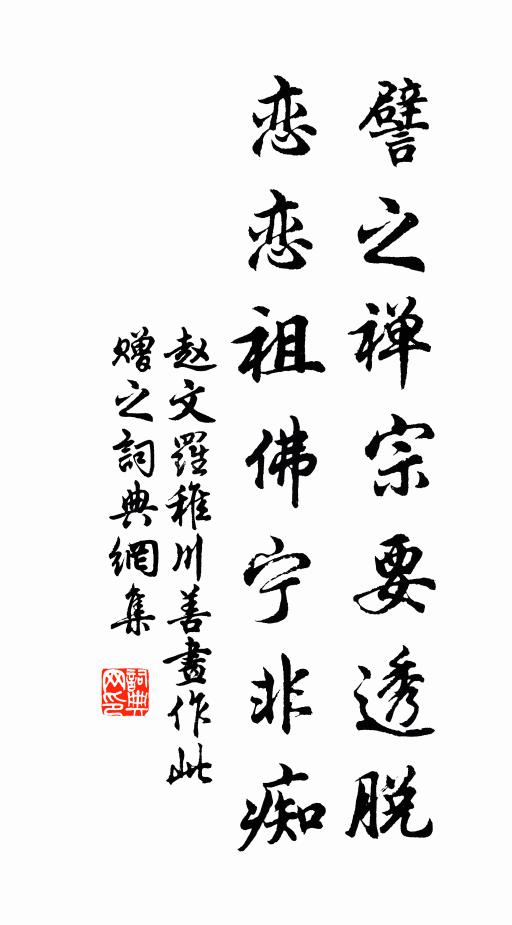 譬之禅宗要透脱
恋恋祖佛宁非痴
赵文羅稚川善畫作此
赠之詞典網集
詞典
网印